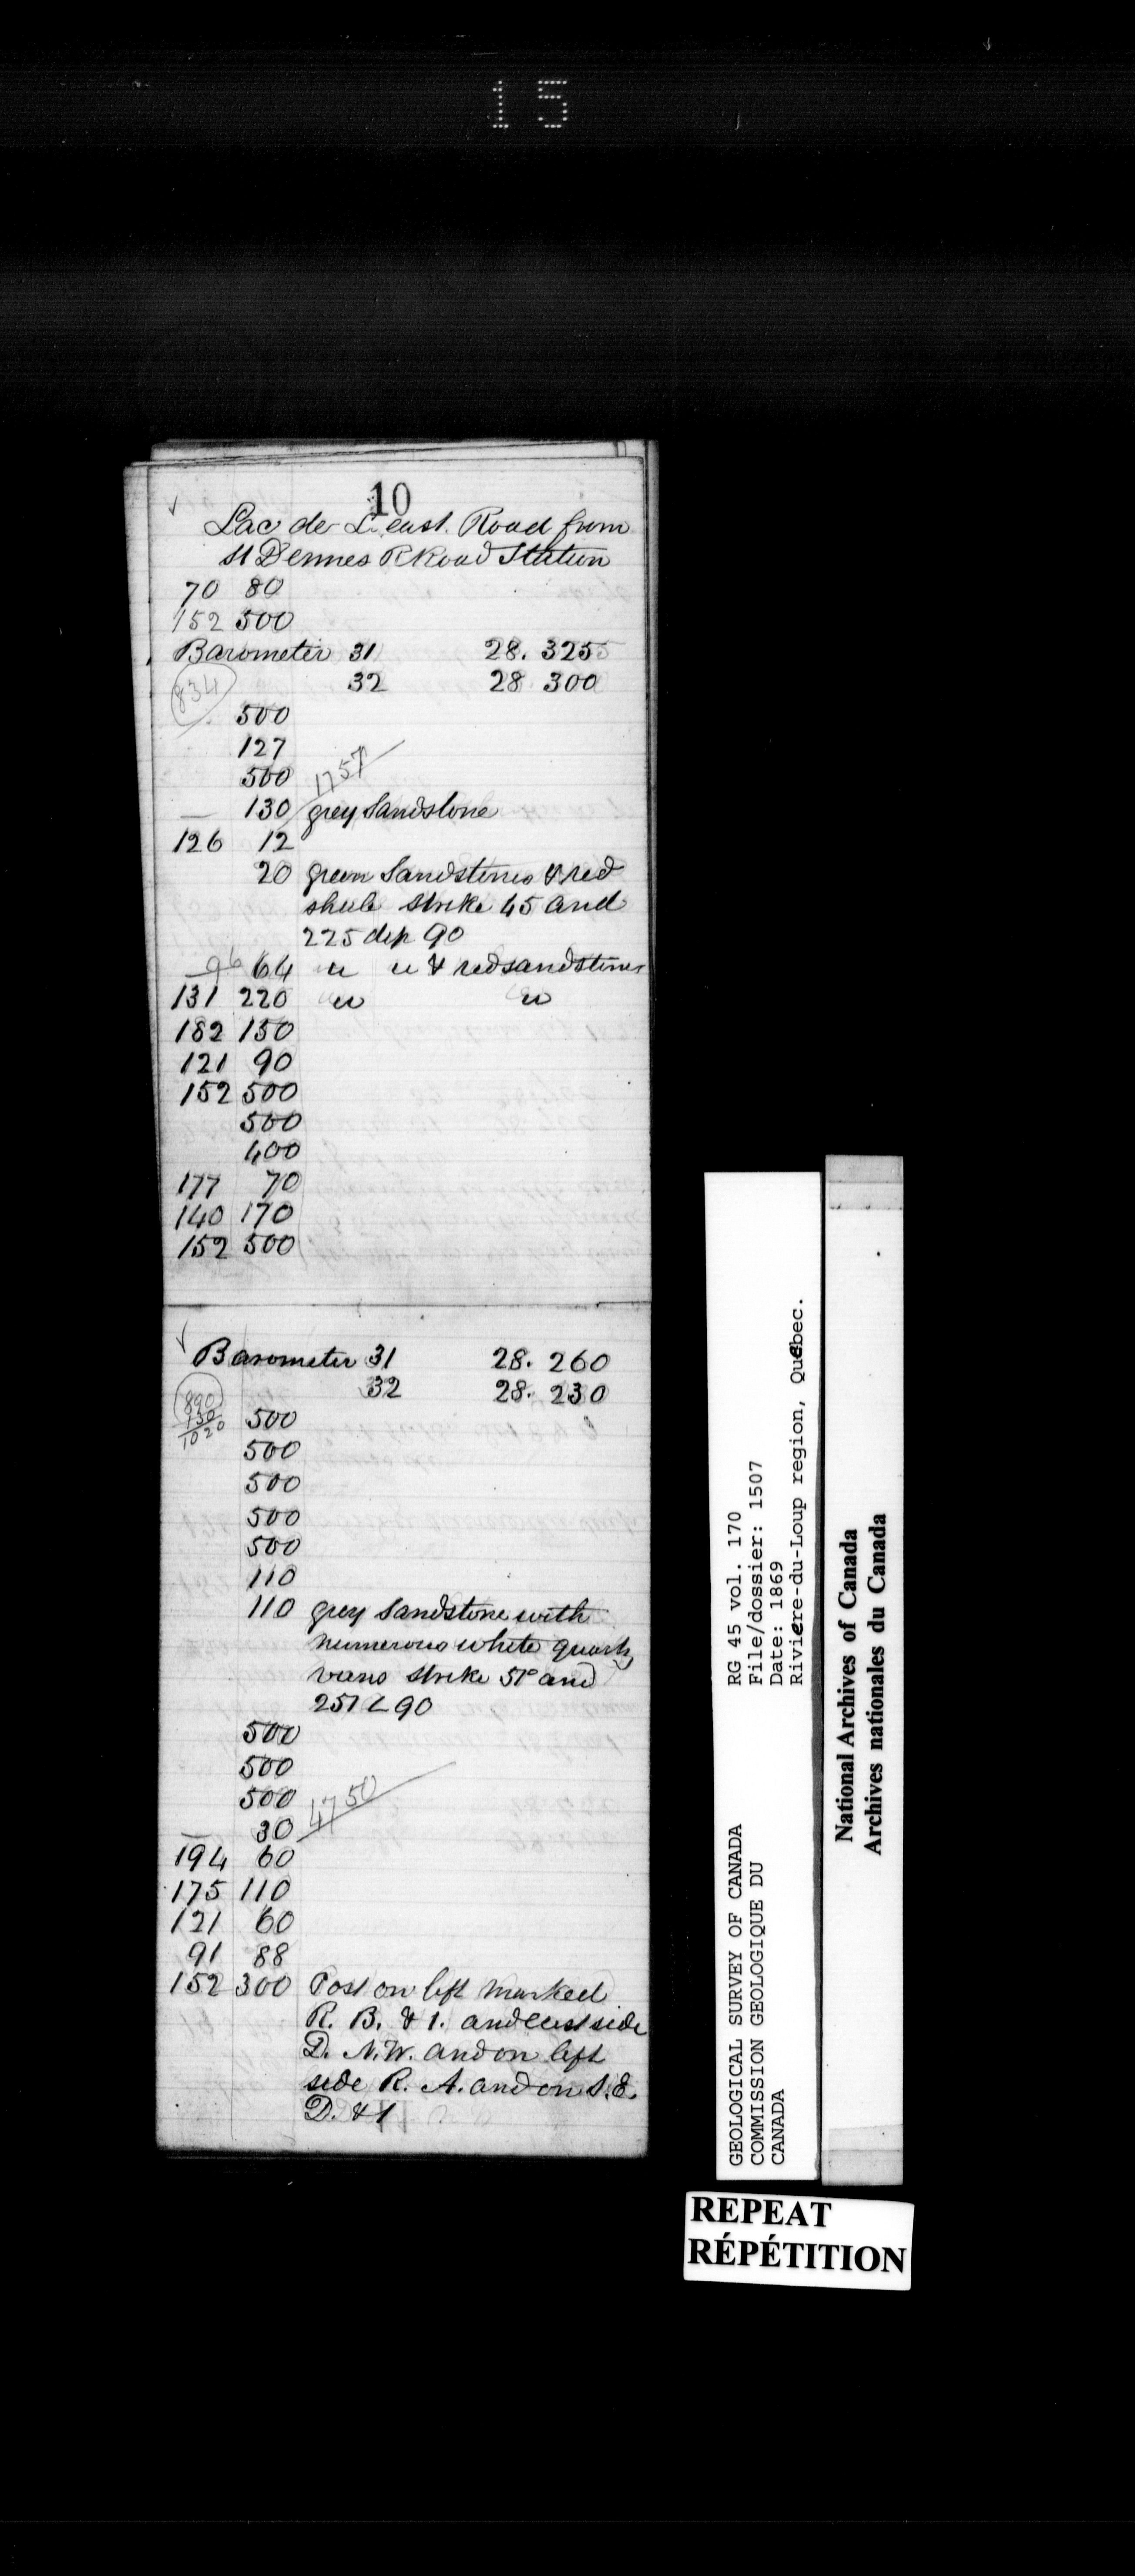 15
10
Lac de L east Road from
St Dennes R Road Station
70 80
152 500
Barometer 31 28. 325
834 32 28 300
500
127
500 1757
130 grey Sandstone
126 12
20 green Sandstones & red
shale strike 45 and
225 dip 90
96 64 " " & red sandstones
131 220 " "
182 150
121 90
152 500
500
400
177 70
140 170
152 500
Barometer 31 28. 260
890 32 28. 230
130 500
1020
500
500
500
500
110
110 grey Sandstone with
numerous white quartz
veins strike 51° and
251 L 90
500
500
500 4750
30
194 60
175 110
121 60
91 88
152 300 Post on left marked
R. B. & 1. and east side
D. N.W. and on left
side R. A. and on S.E.
D. & 1
GEOLOGICAL SURVEY OF CANADA RG 45 vol. 170
COMMISSION GEOLOGIQUE DU File/dossier: 1507
CANADA Date: 1869
Rivière-du-Loup region, Québec.
National Archives of Canada
Archives nationales du Canada
REPEAT
RÉPÉTITION